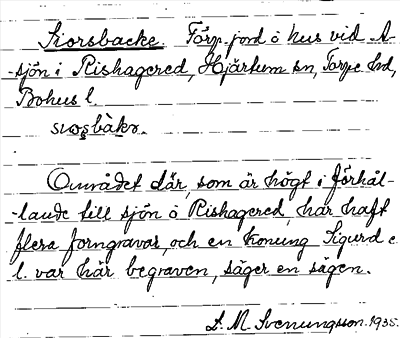 Siorsbacke. Förp. jord o hus vid A-
-sjön i Rishagered, Hjärtum sn, Torpe hd,
Bohus l.
Området där, som är högt i förhål-
-lande till sjön o Rishagered, har haft
flera forngravar, och en konung Sigurd e
l. var här begraven, säger en sägen.
S. M. Svenungsson. 1935.